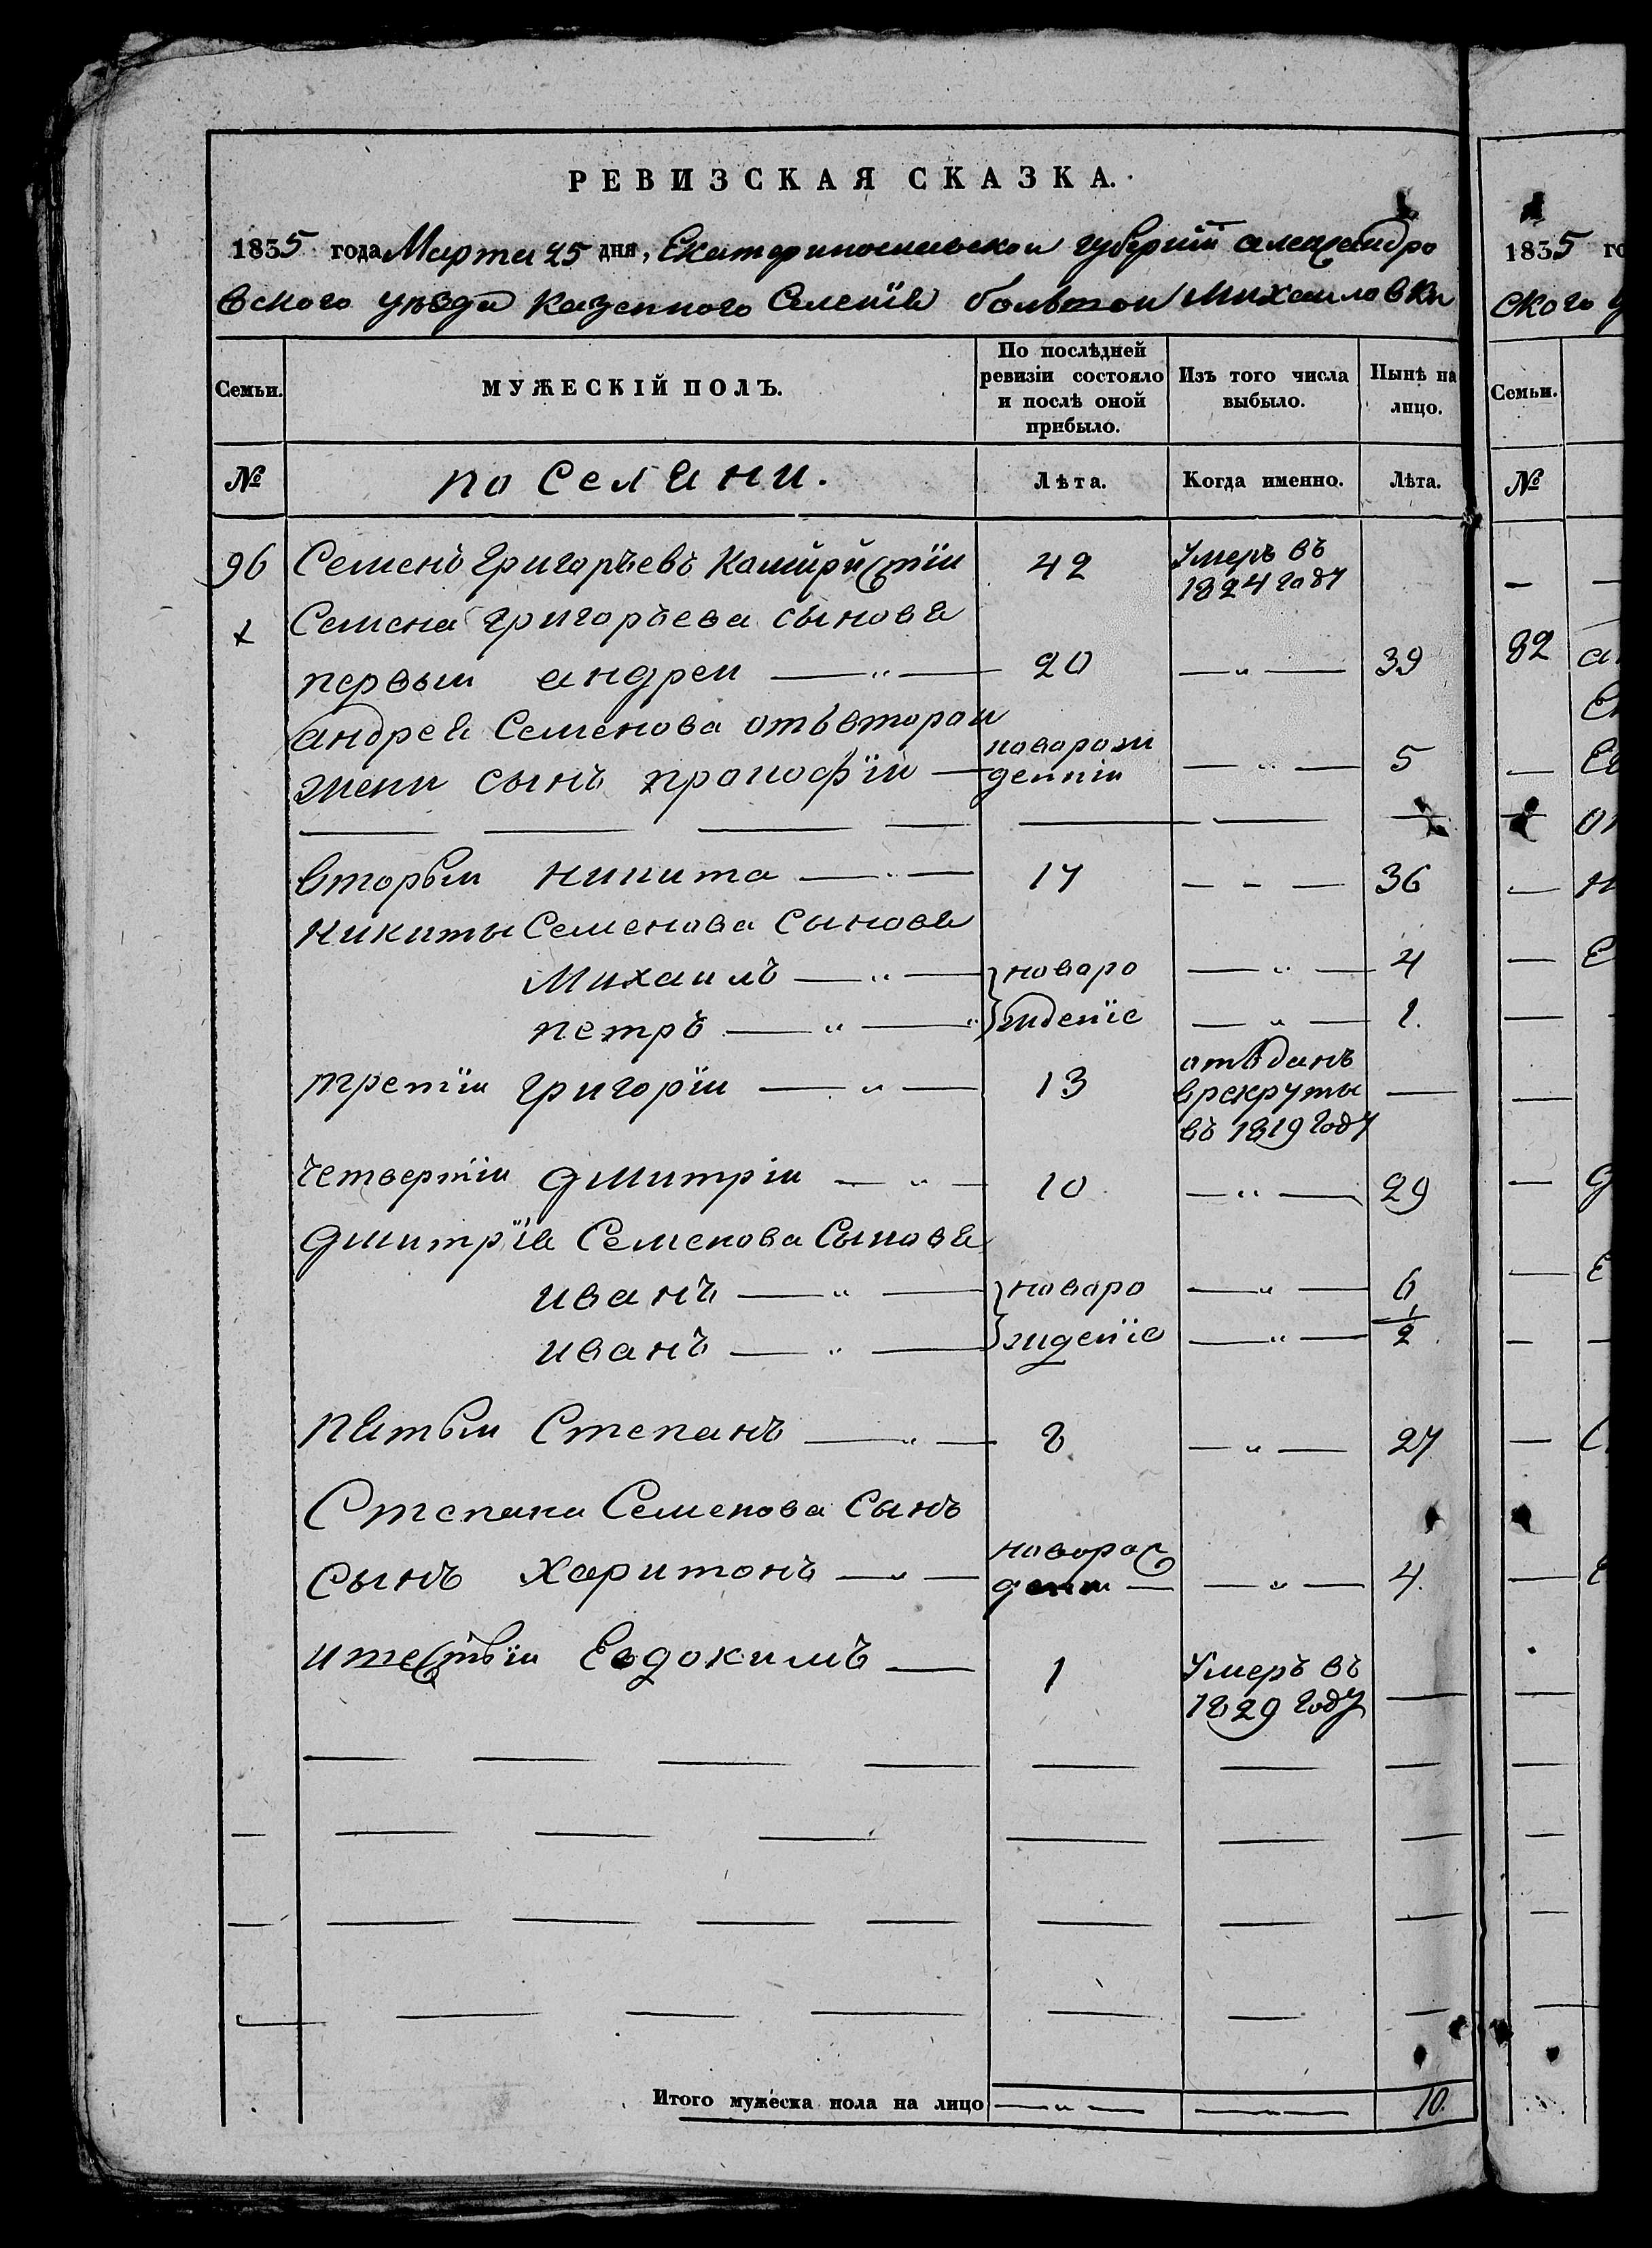 РЕВИЗСКАЯ СКАЗКА.
1835 года Марта 25 дня, Екатеринославской губернїи александро
вского уѣзда казенного Селенїя большой Михаиловки
Семьи.
МУЖЕСКІЙ ПОЛЪ.
По послѣдней ревизіи состояло и послѣ оной прибыло.
Изъ того числа выбыло.
Нынѣ на лицо.
№
поселяни.
Лѣта.
Когда именно.
Лѣта.
96 Семенъ Григоръевъ 42 Умеръ въ 1824 году
Семена Григоръева сыновя
первыи андреи — " — 20 — " — 39
андрея Семенова отъвторои
жени сынъ прокофїи — новорож денніи — " — 5
вторыи никита — " — 17 — - — 36
никиты Семенова Сыновя
Михаилъ — " — новоро — " — 4
петръ — " — жденїе — " — 1.
третїи григорїи — " — 13 отъданъ врекруты въ 1819 году —
четвертїи дмитріи — " — 10 — " — 29
дмитрїя Семенова Сыновя
иванъ — " — новоро — " — 6
иванъ — " — жденїе — " — 1/2
пятыи Степанъ — " — 8 — " — 27
Степана Семенова Сынъ
сынъ харитонъ — " — новорож денн — — " — 4.
ишестыи Евдокимъ — 1 Умеръ въ 1829 году —
Итого мужеска пола на лицо — " — — " — 10.
1835 го
ского у
Семьи.
№
82